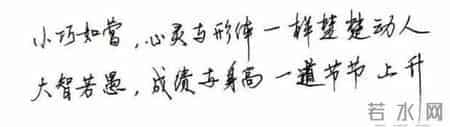 小巧如当，心灵与形体一样楚楚动人
大智若愚，成绩与身高一道节节上升
若水网